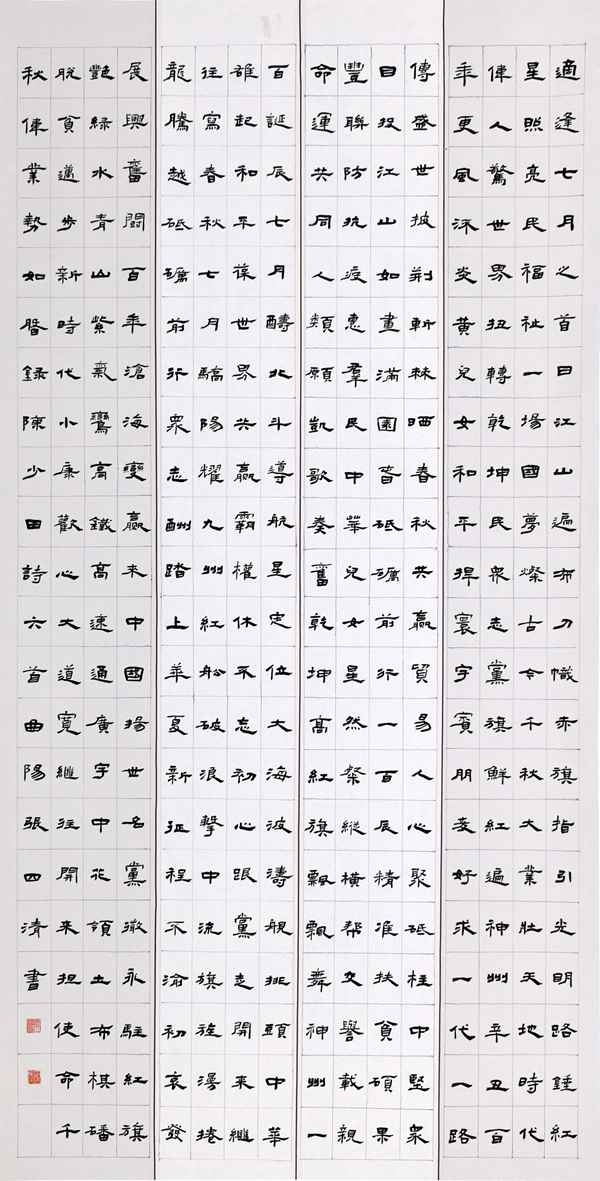 適逢七月之首日江山遍布刀幟赤旗指引光明路錘紅
星照亮民福祉一場國夢燦古今千秋大業壯天地時代
偉人驚世界扭轉乾坤民眾志黨旗鮮紅遍神州辛丑百
年更風沐炎黃兒女和平捍寰宇賓朋友好求一代一路
傳盛世披荊斬棘晒春秋共贏貿易人心聚砥柱中堅眾
日投江山如畫滿園香砥礪前行一百辰精准扶貧碩果
豐聯防抗疫惠羣民中華兒女星然粲縱橫幫交譽載親
命運共同人類願凱歌奏奮乾坤高紅旗飄飄舞神州一
百誕辰七月醻北斗導航星定位大海波濤艦挑頭中華
雄起和平葆世界共贏霸權休不忘初心跟黨走開來繼
往寫春秋七月驕陽耀九州紅船破浪擊中流旗旌漫捲
龍騰越砥礪前行眾志酬踏上華夏新征程不渝初衷發
展興奮鬪百年滄海變贏來中國揚世名黨徽永駐紅旗
艷綠水青山紫氣鸞高鐵高速通廣宇中花領土布棋磻
脫貧邁步新時代小康歡心大道寬繼往開來担使命千
秋偉業勢如磐錄陳少田詩六首曲陽張四清書